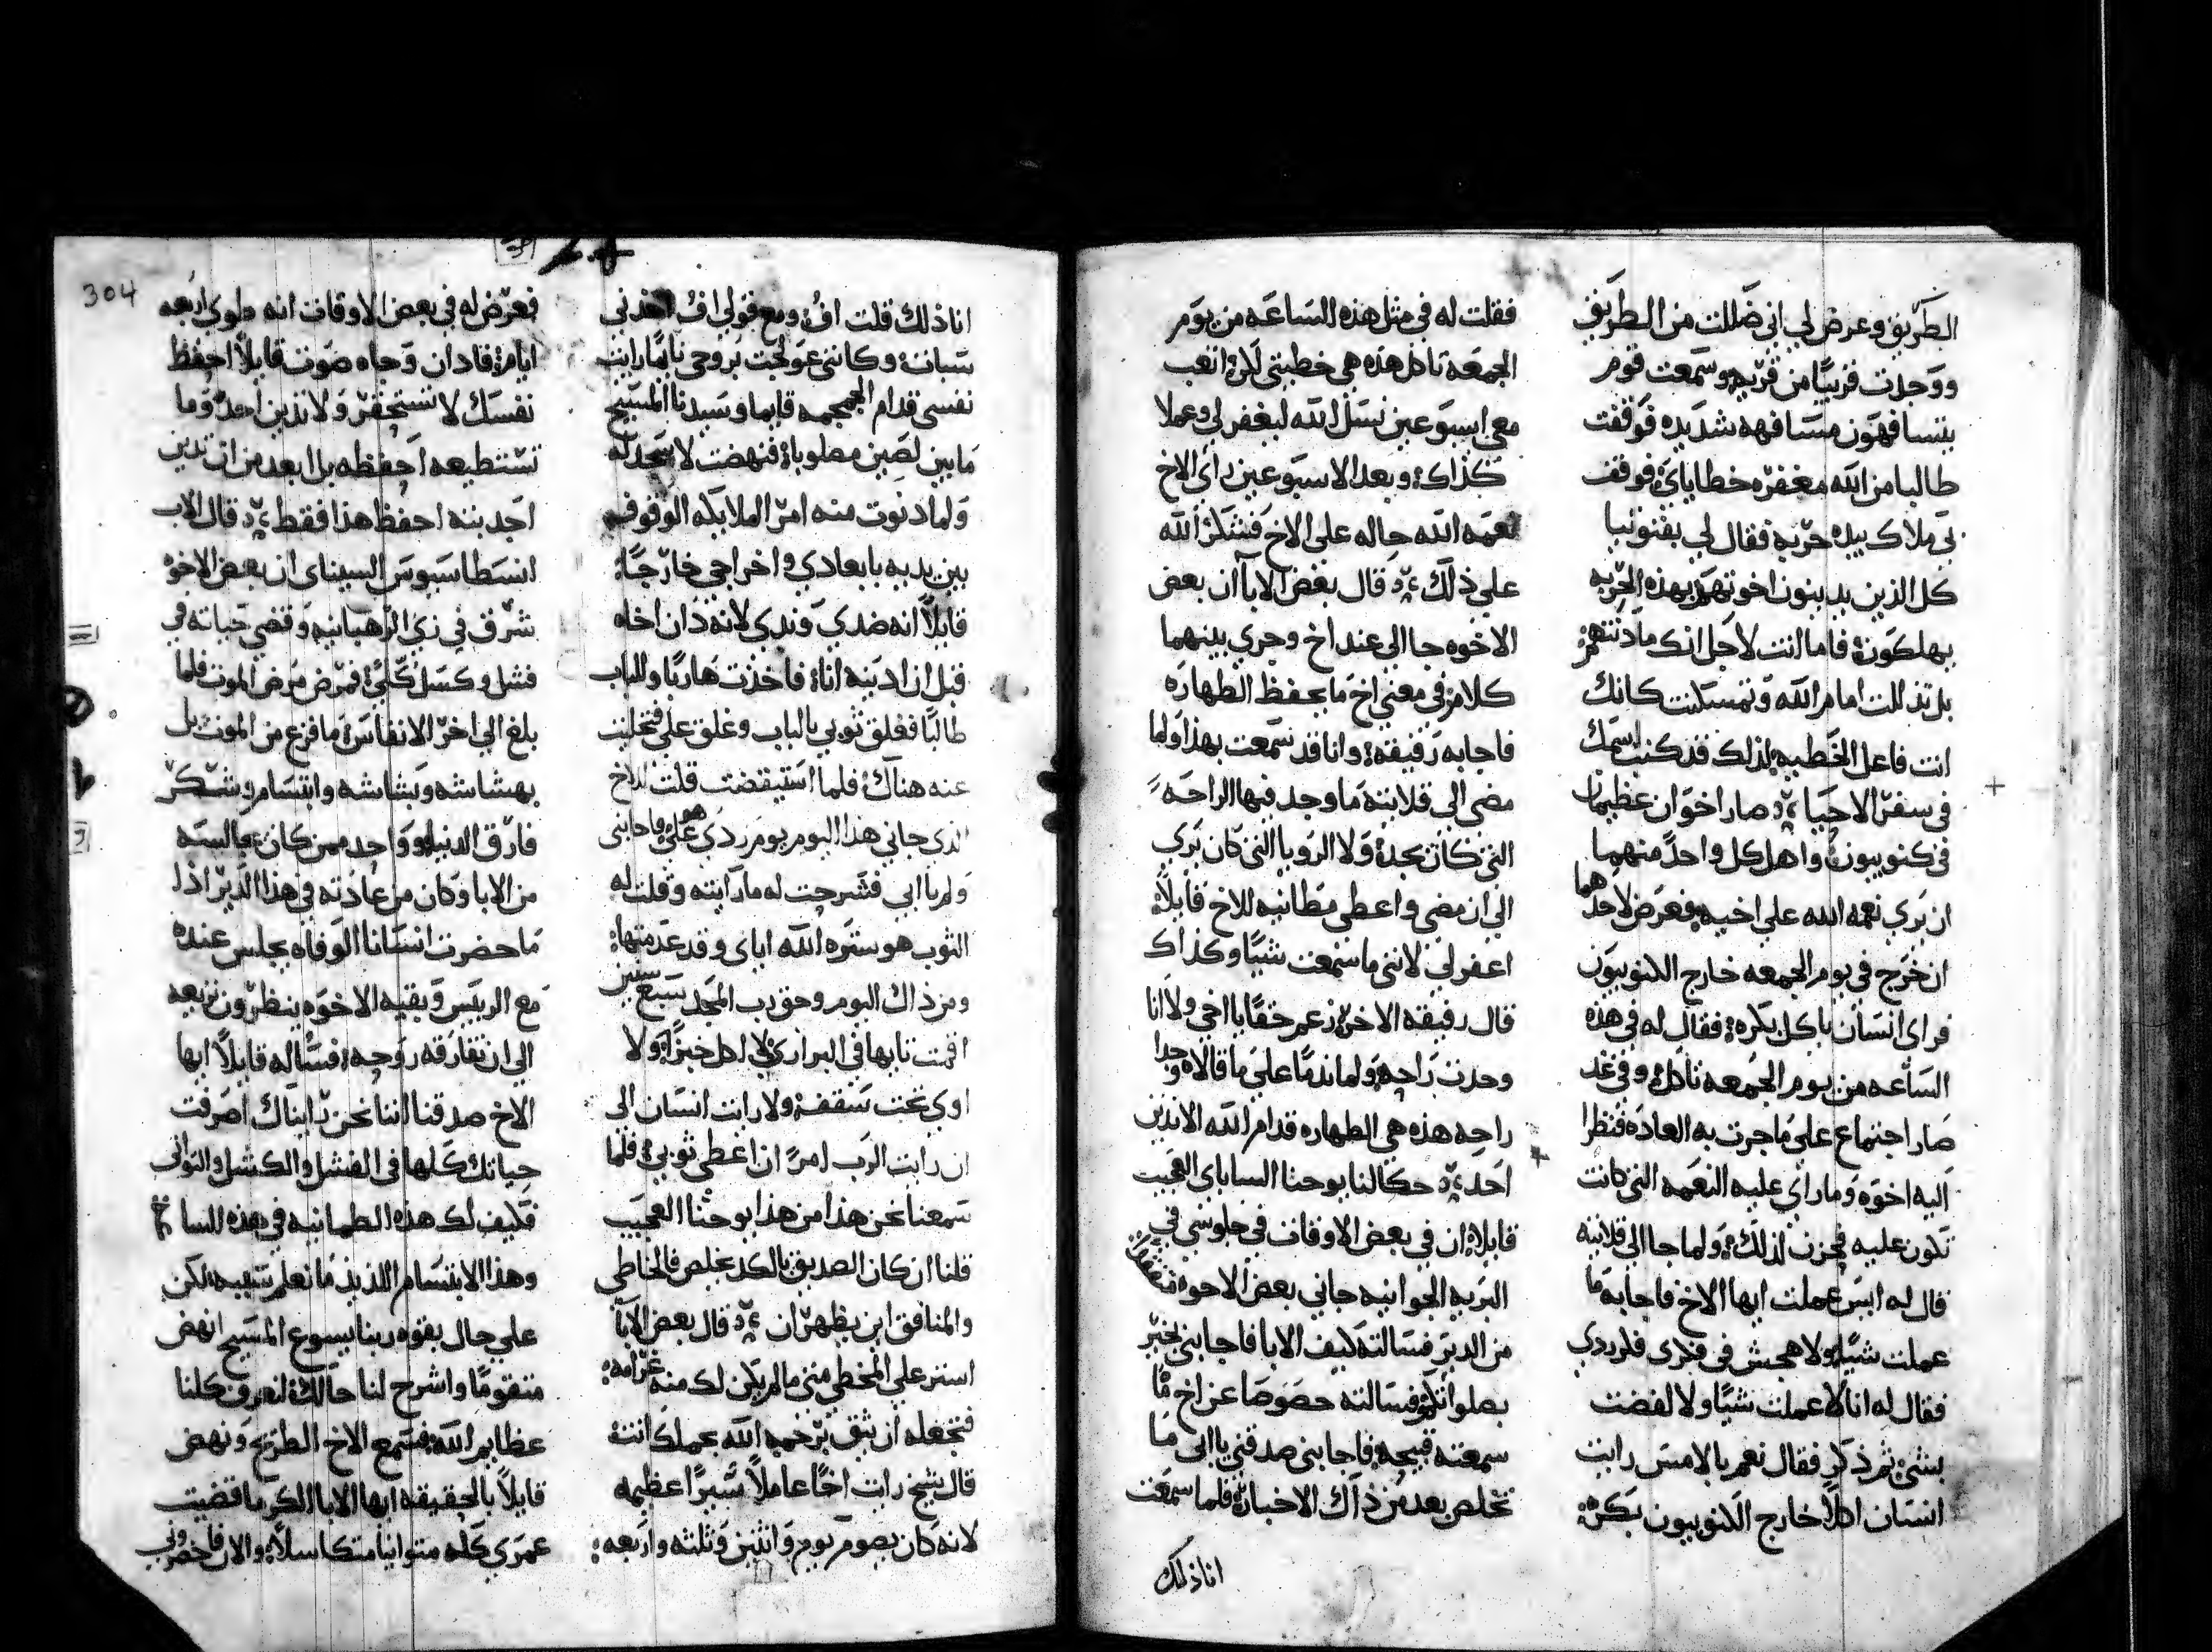 الطريق وعرض لي اني ضللت من الطريق
ووجدت قريبًا من قريه وسمعت قوم
يتسافهون مسافهه شديده فوقفت
طالبا من الله مغفره خطاياي فوقف
بي ملاك بيده حربه فقال لي يفنونيا
كل الذين يدينون اخوتهم بهذه الحربه
يهلكون فاما انت لاجل انك ما دنتهم
بل تذللت امام الله وتمسكنت كانك
انت فاعل الخطيه لذلك قد كتب اسمك
في سفر الاحيا صار اخوان عظيمان
في كنوبيون واهل كل واحدً منهما
ان يري نعمه الله علي اخيه فعرض لاحدهما
ان خرج في يوم الجمعه خارج الكنوبيون
فراى انسان ياكل بكره فقال له في هذه
الساعه من يوم الجمعه تاكل وفي غد
صار اجتماع علي ما جرت به العاده فنظرا
اليه اخوه وما راي عليه النعمه التي كانت
تكون عليه فحزن لذلك ولما جا الي قلايته
قال له ايس عملت ايها الاخ فاجابه ما
عملت شيًا ولا هجس في فكري فكر ردي
فقال له انا لا عملت شيًا ولا لفضت
بشي ثم ذكر فقال نعم بالامس رايت
انسان اكلاً خارج الكنوبيون بكره
فقلت له في مثل هذه الساعه من يوم
الجمعه تاكل هذه هي خطيتي لكن اتعب
معي اسبوعين نسل الله ليغفر لي وعملا
كذاك وبعد الاسبوعين راي الاخ
نعمه الله حاله علي الاخ فشكر الله
علي ذلك قال بعض الابا ان بعض
الاخوه جا الي عند اخ وجري بينهما
كلام في معني اخ ما يحفظ الطهاره
فاجابه رفيقه وانا قد سمعت بهذا ولما
مضي الي قلايته ما وجد فيها الراحه
التي كان يجد ولا الرويا التي كان يري
الي ان مضي واعطي مطانيه للاخ قايلاً
اغفر لي لانني ما سمعت شيًا وكذاك
قال رفيقه الاخر زعم حقًا يا اخي ولا انا
وجدت راحه ولما ندما علي ما قالاه وجدا
راحه هذه هي الطهاره قدام الله الا ندين
احد حكا لنا يوحنا الساباي العجيب
قايلا ان في بعض الاوقات في جلوسي في
البريه الجوانيه جاني بعض الاخوه
من الدير فسالته كيف الابا فاجابني بخير
بصلواتك فسالته خصوصا عن اخ ما
سمعته قبيحه فاجابني صدقني يا ابي ما
تخلص بعد من ذاك الاخبار فلما سمعت
انا ذلك
304
انا ذلك قلت اف ومع قولي اف اخذني
سبات وكانني عولجت بروحي نايما رايت
نفسي قدام الجمجمه قايما وسيدنا المسيح
ما بين لصين مصلوبا فنهضت لاسجد له
ولما دنوت منه امر الملايكه الوقوف
بين يديه بابعادي واخراجي خارجًا
قايلاً انه ضدي وندي لانه دان اخاه
قبل ان ادينه انا فاخذت هاربًا وللباب
طالبًا فعلق ثوبي بالباب وغلق علي فتخليت
عنه هناك فلما استيقضت قلت للاخ
الذي جاني هذا اليوم يوم ردي هو علي فاجابني
ولم يا ابي فشرحت له ما رايته وقلت له
الثوب هو ستره الله اياي وقد عدمتها
ومن ذاك اليوم وحق رب المجد سبع سنين
اقمت تايها في البراري لا اكل خبزًا ولا
اوي تحت سقف ولا رايت انسان الى
ان رايت الرب امرً ان اعطي ثوبي فلما
سمعنا نحن هذا من هذا يوحنا العجيب
قلنا ان كان الصديق بالكد يخلص فالخاطي
والمنافق اين يظهران قال بعض الابا
استر علي المخطي متي ما لم يكن لك منه غرامه
فتجعله ان يثق برحمه الله بحملك انت
قال شيخ رايت اخًا عاملاً سيرًا عظيمه
لانه كان يصوم يوم واثنين وثلثه واربعه
فعرض له في بعض الاوقات انه طوي اربعه
ايام فادان وجاه صوت قايلاً احفظ
نفسك لا تستحقر ولا تدين احد وما
تستطيعه احفظه بل ابعد من ان تدين
احد بته احفظ هذا فقط قال الاب
انسطاسيوس السيناي ان بعض الاخوه
شرف في زي الرهبانيه وقضي حياته في
فشل وكسل كلي فمرض مرض الموت فلما
بلغ الي اخر الانفاس ما فزع من الموت بل
بهشاشه وبشاشه وابتسام وشكر
فارق الدنيا وواحد ممن كان مجالسه
من الابا وكان من عادته في هذا الدير اذا
ما حضرت انسانا الوفاه يجلس عنده
مع الرييس وبقيه الاخوه ينظرون نزيعه
الي ان تفارقه روحه فساله قايلاً ايها
الاخ صدقنا اننا نحن رايناك اصرفت
حياتك كلها في الفشل والكسل والتواني
فكيف لك هذه الطمانيه في هذه الساعه
وهذا الابتسام اللذيذ ما نعلم سببه لكن
علي حال بقوه ربنا يسوع المسيح انهض
متقومًا واشرح لنا حالك لنعرف كلنا
عظايم الله فسمع الاخ الطريح ونهض
قايلاً بالحقيقه ايها الابا الكرما قضيت
عمري كله متوانيًا متكاسلاً والان فاحضروني